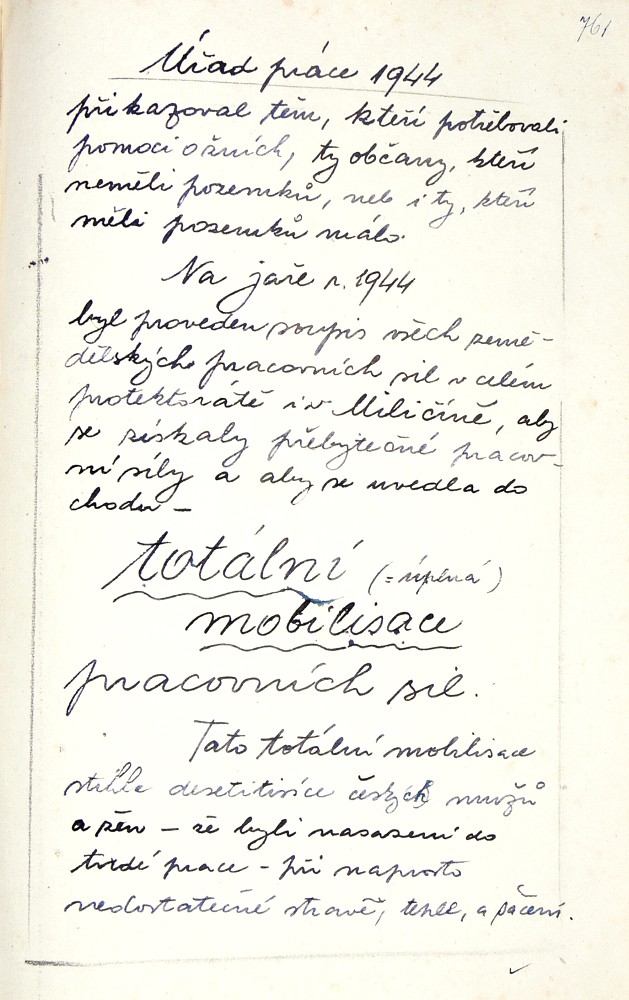 761
Úřad práce 1944
přikazoval těm, kteří potřebovali
pomoci o žních, ty občany, kteří
neměli pozemků, neb i ty, kteří
měli pozemků málo.
Na jaře r. 1944
byl proveden soupis všech země-
dělských pracovních sil v celém
protektorátě i v Miličíně, aby
se získaly přebytečné pracov-
ní síly a aby se uvedla do
chodu –
totální (= úplná)
mobilisace
pracovních sil.
Tato totální mobilisace
stihla desetitisíce českých mužů
a žen – že byli nasazeni do
tvrdé práce – při naprosto
nedostatečné stravě, teple, a šacení.